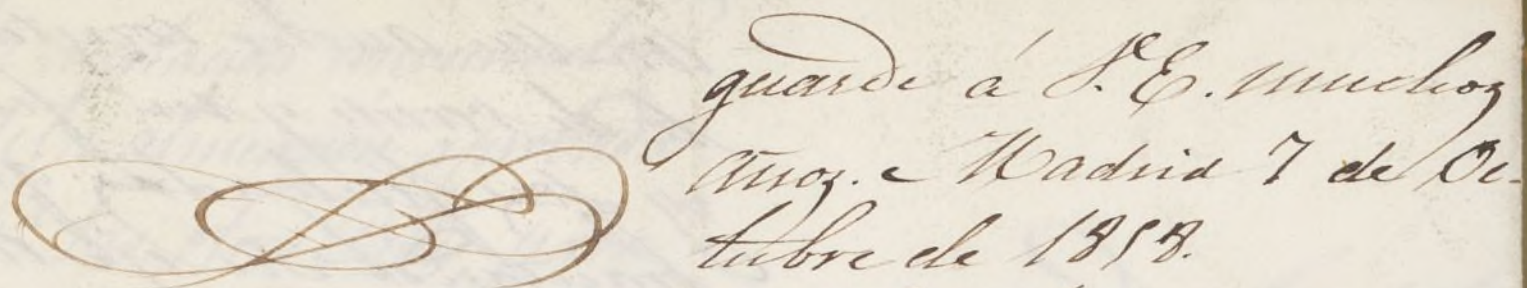 guarde á V. E. muchos
años. Madrid 7 de Oc-
tubre de 1858.